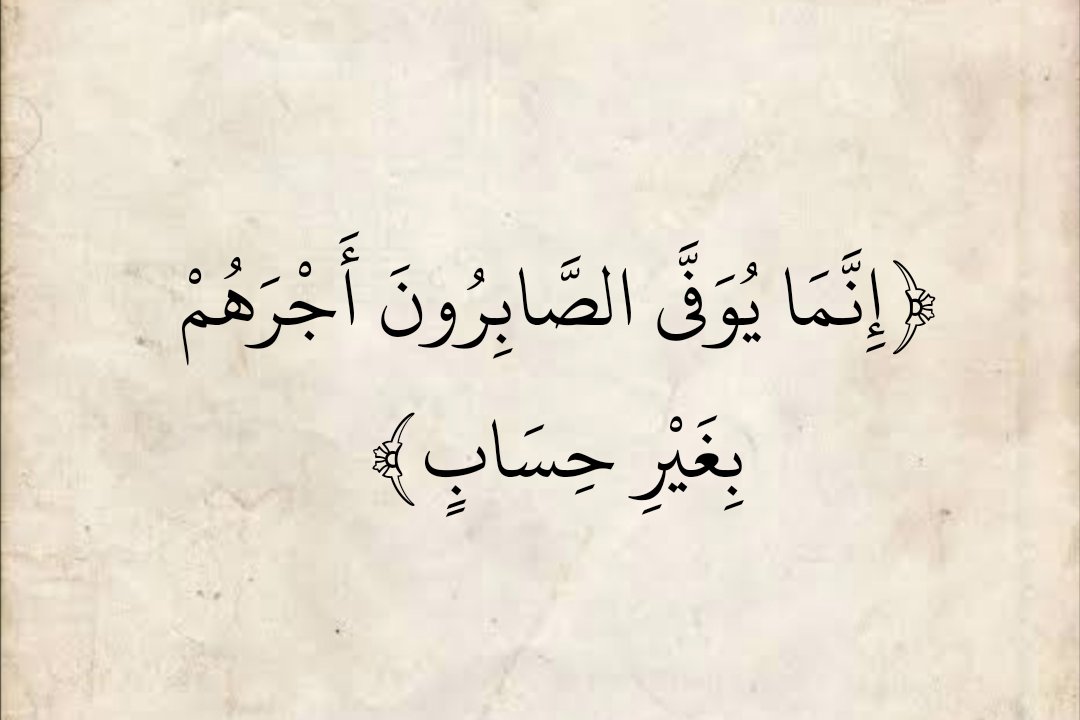 ﴿إِنَّمَا يُوَفَّى الصَّابِرُونَ أَجْرَهُمْ
بِغَيْرِ حِسَابٍ﴾